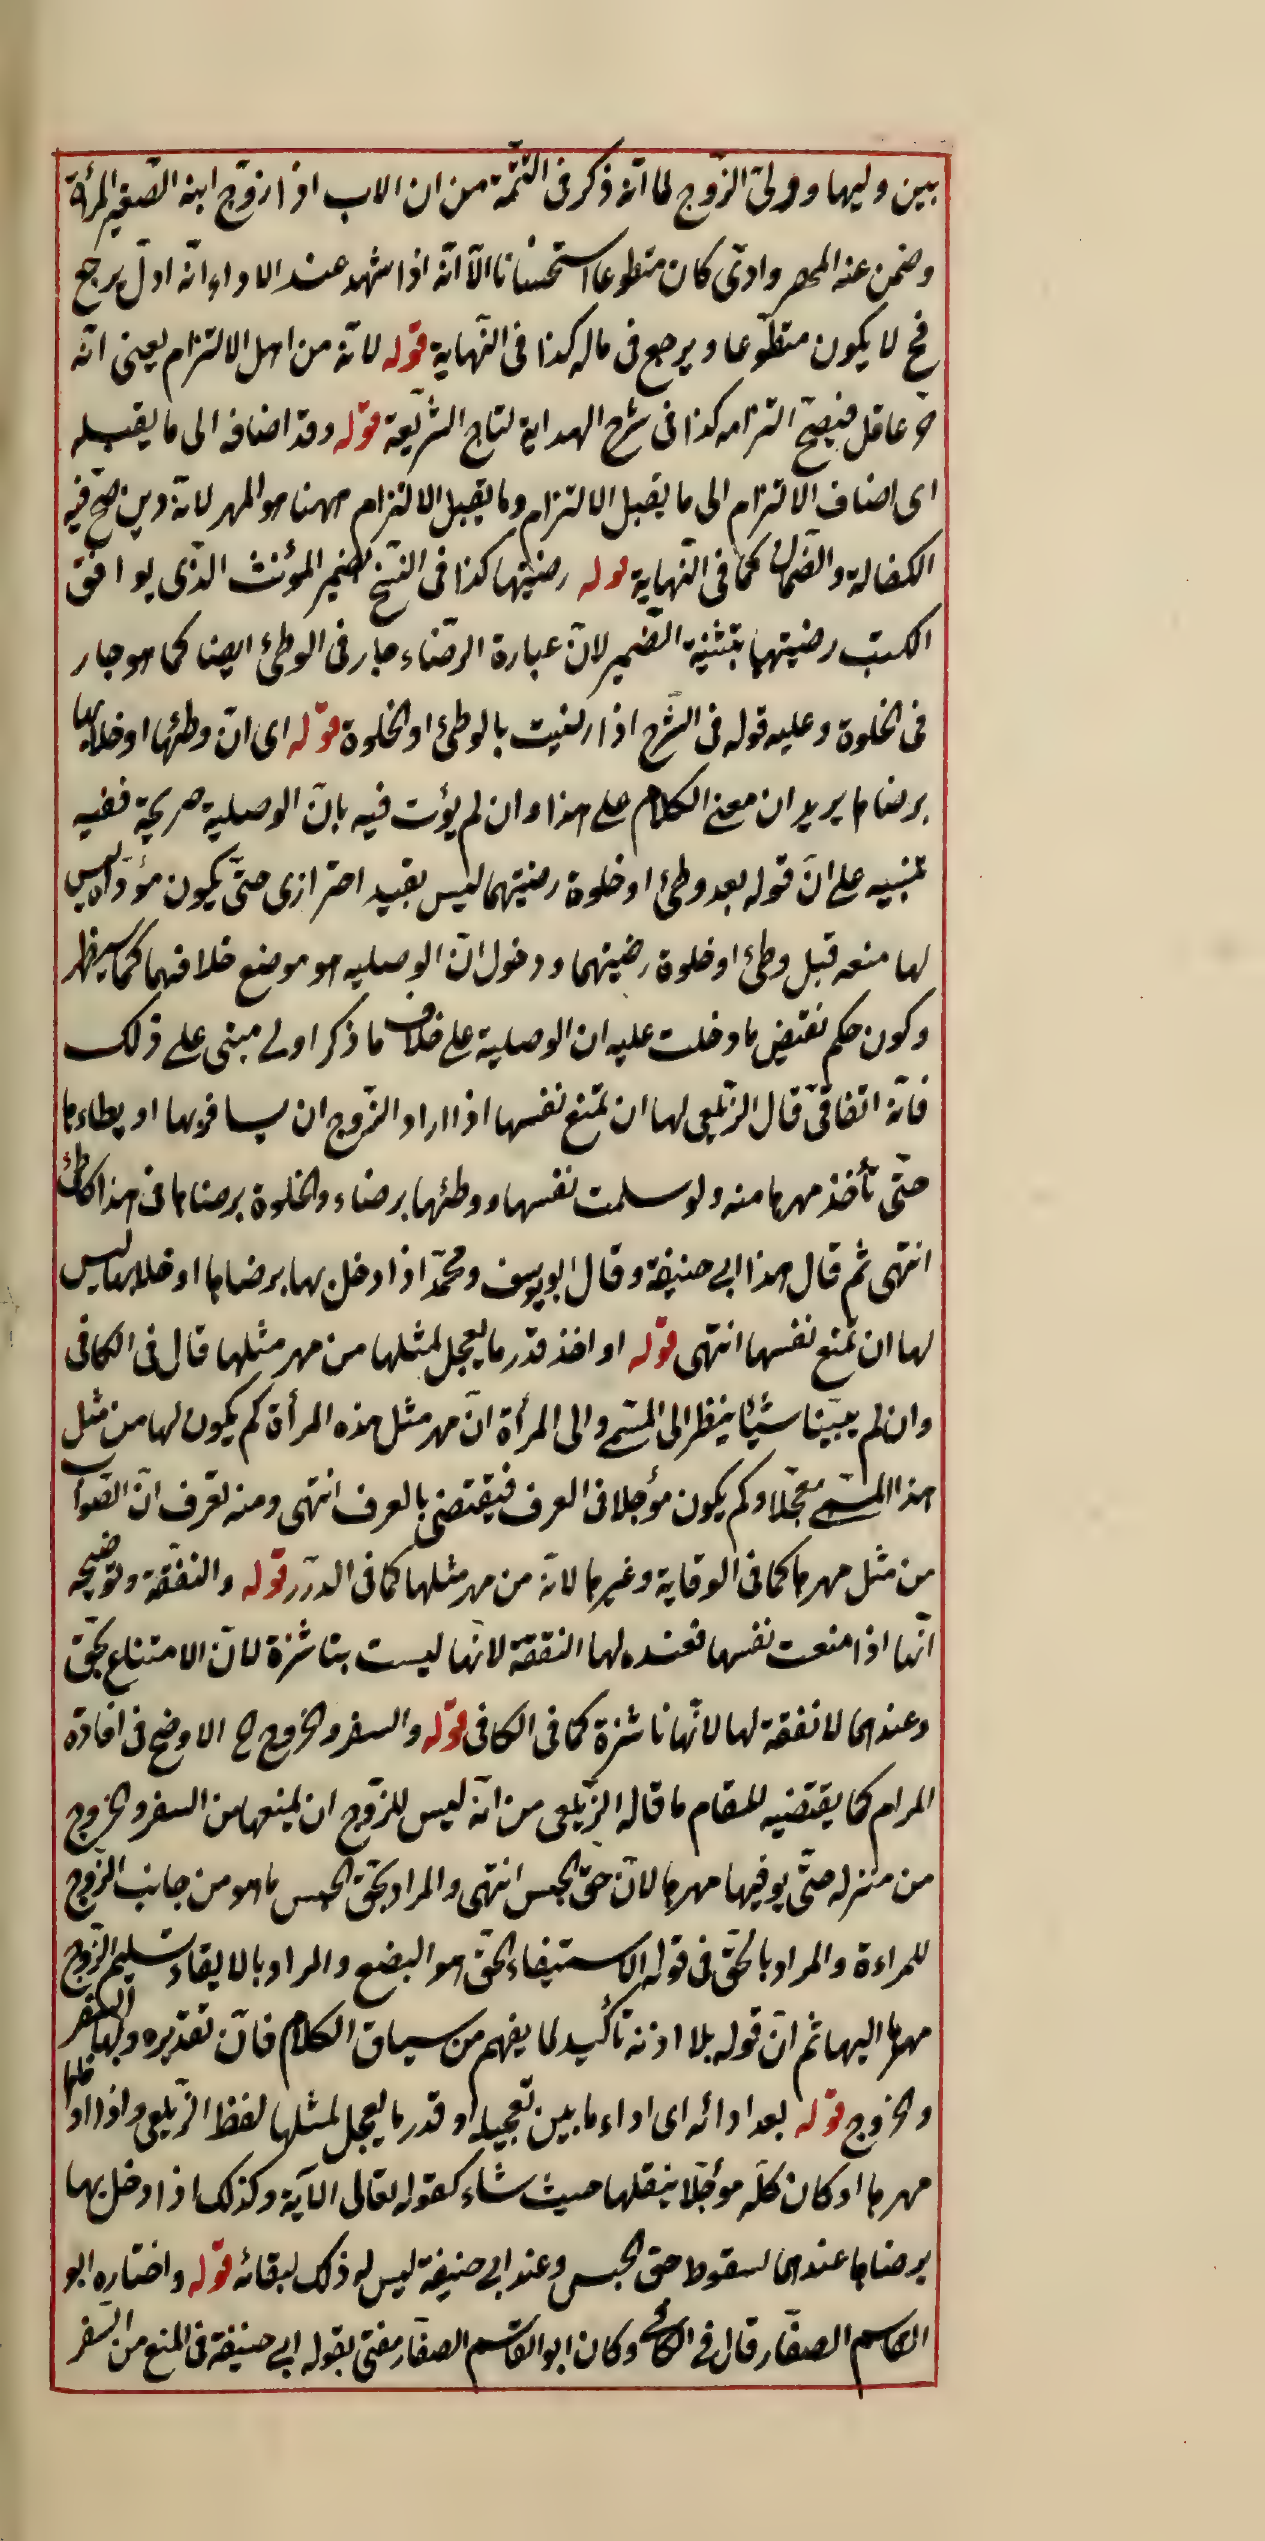 بين وليها وولىّ الزّوج لما انّه ذكر فى التّتمّة من ان الاب اذا زوّج ابنه الصّغير المرأة
وضمن عنه المهر وادّى كان متطوعا استحسانا الاّ انّه اذا شهد عند الاداء انّه ادىّ ليرجع
فح لا يكون متطوّعا ويرجع فى ماله كذا فى النّهاية قوله لانّه من اهل الالتزام يعنى انّه
حرّ عاقل فيصحّ التزامه كذا فى شرح الهداية لتاج الشّريعة قوله وقد اضافه الى ما يقبله
اى اضاف الالتزام الى ما يقبل الالتزام وما يقبل الالتزام ههنا هو المهر لانّه دين صحّ فيه
الكفالة والضّمان كما فى النّهاية قوله رضيتها كذا فى النسّخ لضمير المؤنث الذّى يوافق
الكتب رضيتهما بتثنية الضّمير لانّ عبارة الرّضاء جار فى الوطئ ايضا كما هو جار
فى الخلوة وعليه قوله فى الشّرح اذا رضيت بالوطئ او الخلوة قوله اى انّ وطئها او خلا بها
برضاها يريد ان معنى الكلام على هذا وان لم يؤت فيه بانّ الوصلية صريحة ففيه
تنبيه على انّ قوله بعد وطئ او خلوة رضيتهما ليس بقيد احترازى حتّى يكون مؤدّاه ليس
لها منعه قبل وطئ او خلوة رضيتهما ودخول انّ الوصليه هو موضع خلافهما كما سيظهر
وكون حكم نقيض ما دخلت عليه ان الوصلية على خلاف ما ذكر اولى مبنى على ذلك
فانّه اتفاقىّ قال الزّيلعى لها ان تمنع نفسها اذا اراد الزّوج ان يسافر بها او يطاءها
حتّى تأخذ مهرها منه ولو سلمت نفسها ووطئها برضاء والخلوة برضاها فى هذا كالوطئ
انتهى ثم قال هذا ابى حنيفة وقال ابو يوسف ومحمّد اذا دخل بها برضاها او خلا بها ليس
لها ان تمنع نفسها انتهى قوله او اخذ قدر ما يعجل لمثلها من مهر مثلها قال فى الكافى
وان لم يبيّنا شيئا ينظر الى المسّمى والى المرأة انّ مهر مثل هذه المرأة كم يكون لها من مثل
هذا المسّمى معجّلا وكم يكون مؤجلا فى العرف فيقتضى بالعرف انتهى ومنه تعرف انّ الصّواب
من مثل مهرها كما فى الوقاية وغيرها لانّه من مهر مثلها كما فى الدّرر قوله والنفقة وتوضيحه
انّها اذا منعت نفسها فعنده لها النفقة لانّها ليست بناشزة لانّ الامتناع بحقّ
وعندهما لا نفقة لها لانّها ناشزة كما فى الكافى قوله والسفر والخروج ح الاوضح فى افادة
المرام كما يقتضيه للمقام ما قاله الزّيلعى من انّه ليس للزّوج ان يمنعها من السفر والخروج
من منزله حتّى يوفيها مهرها لانّ حقّ الحبس انتهى والمراد بحقّ الحبس ما هو من جانب الزّوج
للمراءة والمراد بالحقّ فى قوله الاستيفاء الحقّ هو البضع والمراد بالايفاء تسليم الزّوج
مهرها اليها ثم انّ قوله بلا اذنه تأكيد لما يفهم من سياق الكلام فانّ تقديره ولها السفر
والخروج قوله بعد ادائه اى اداء ما بين تعجيله او قدر ما يعجل لمثلها لفظ الزّيلعى واذا اوفاها
مهرها او كان كلّه مؤجّلا ينقلها حيث شاء كقوله تعالى الآية وكذلك اذا دخل بها
برضاها عندهما لسقوط حق الحبس وعند ابى حنيفة ليس له ذلك لبقائه قوله واختاره ابو
القاسم الصفّار قال فى الكافى وكان ابو القاسم الصفّار مفتى بقوله ابى حنيفة فى المنع من السّفر